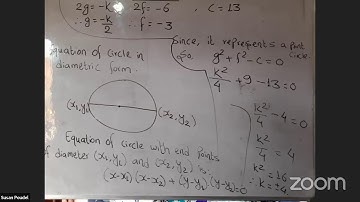 2g = -k 2f = -6 , c = 13
∴ g = -k/2 ∴ f = -3
Since, it represents a point circle
So, g² + f² - c = 0
k²/4 + 9 - 13 = 0
k²/4 - 4 = 0
k²/4 = 4
k² = 16
∴ k = ±4
Equation of circle in
diametric form.
(x₁, y₁) (x₂, y₂)
Equation of circle with end points
of diameter (x₁, y₁) and (x₂, y₂) is.
(x-x₁) (x-x₂) + (y-y₁) (y-y₂) = 0
Susan Poudel
zoom